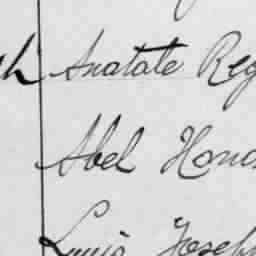 Anatate Reg
Abel Hono
Louis Joseph